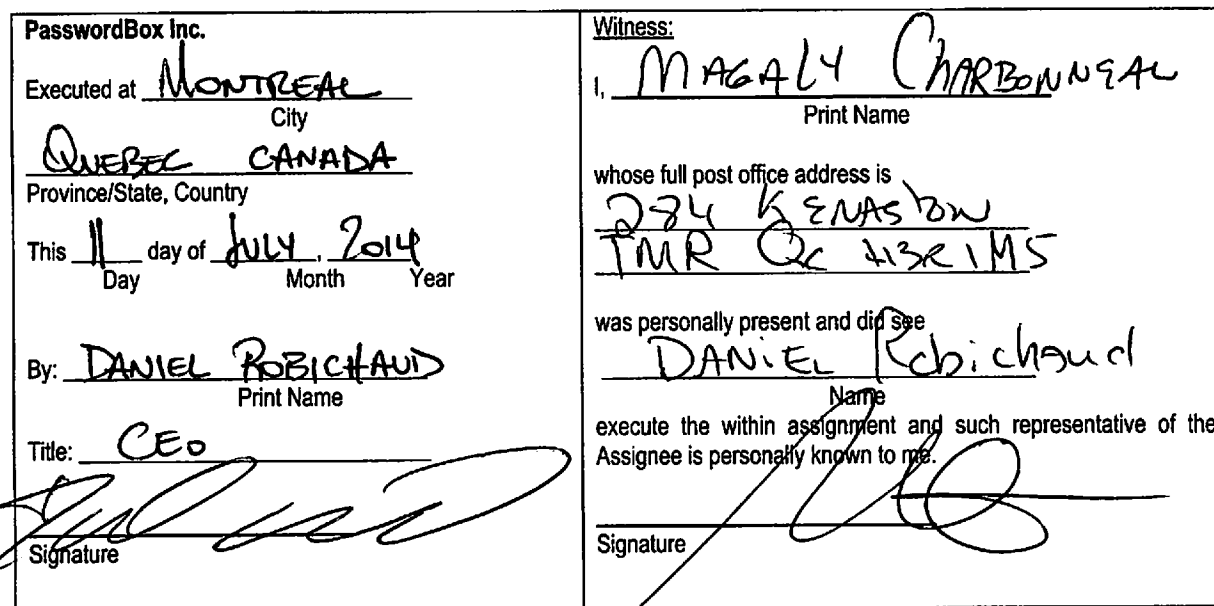 PasswordBox Inc.
Executed at MONTREAL
City
QUEBEC CANADA
Province/State, Country
This 11 day of JULY, 2014
Day Month Year
By: DANIEL ROBICHAUD
Print Name
Title: CEO
Signature
Witness:
I, MAGALY CHARBONNEAU
Print Name
whose full post office address is
284 KENASTON
TMR Qc H3R 1M5
was personally present and did see
DANIEL Robichaud
Name
execute the within assignment and such representative of the
Assignee is personally known to me.
Signature